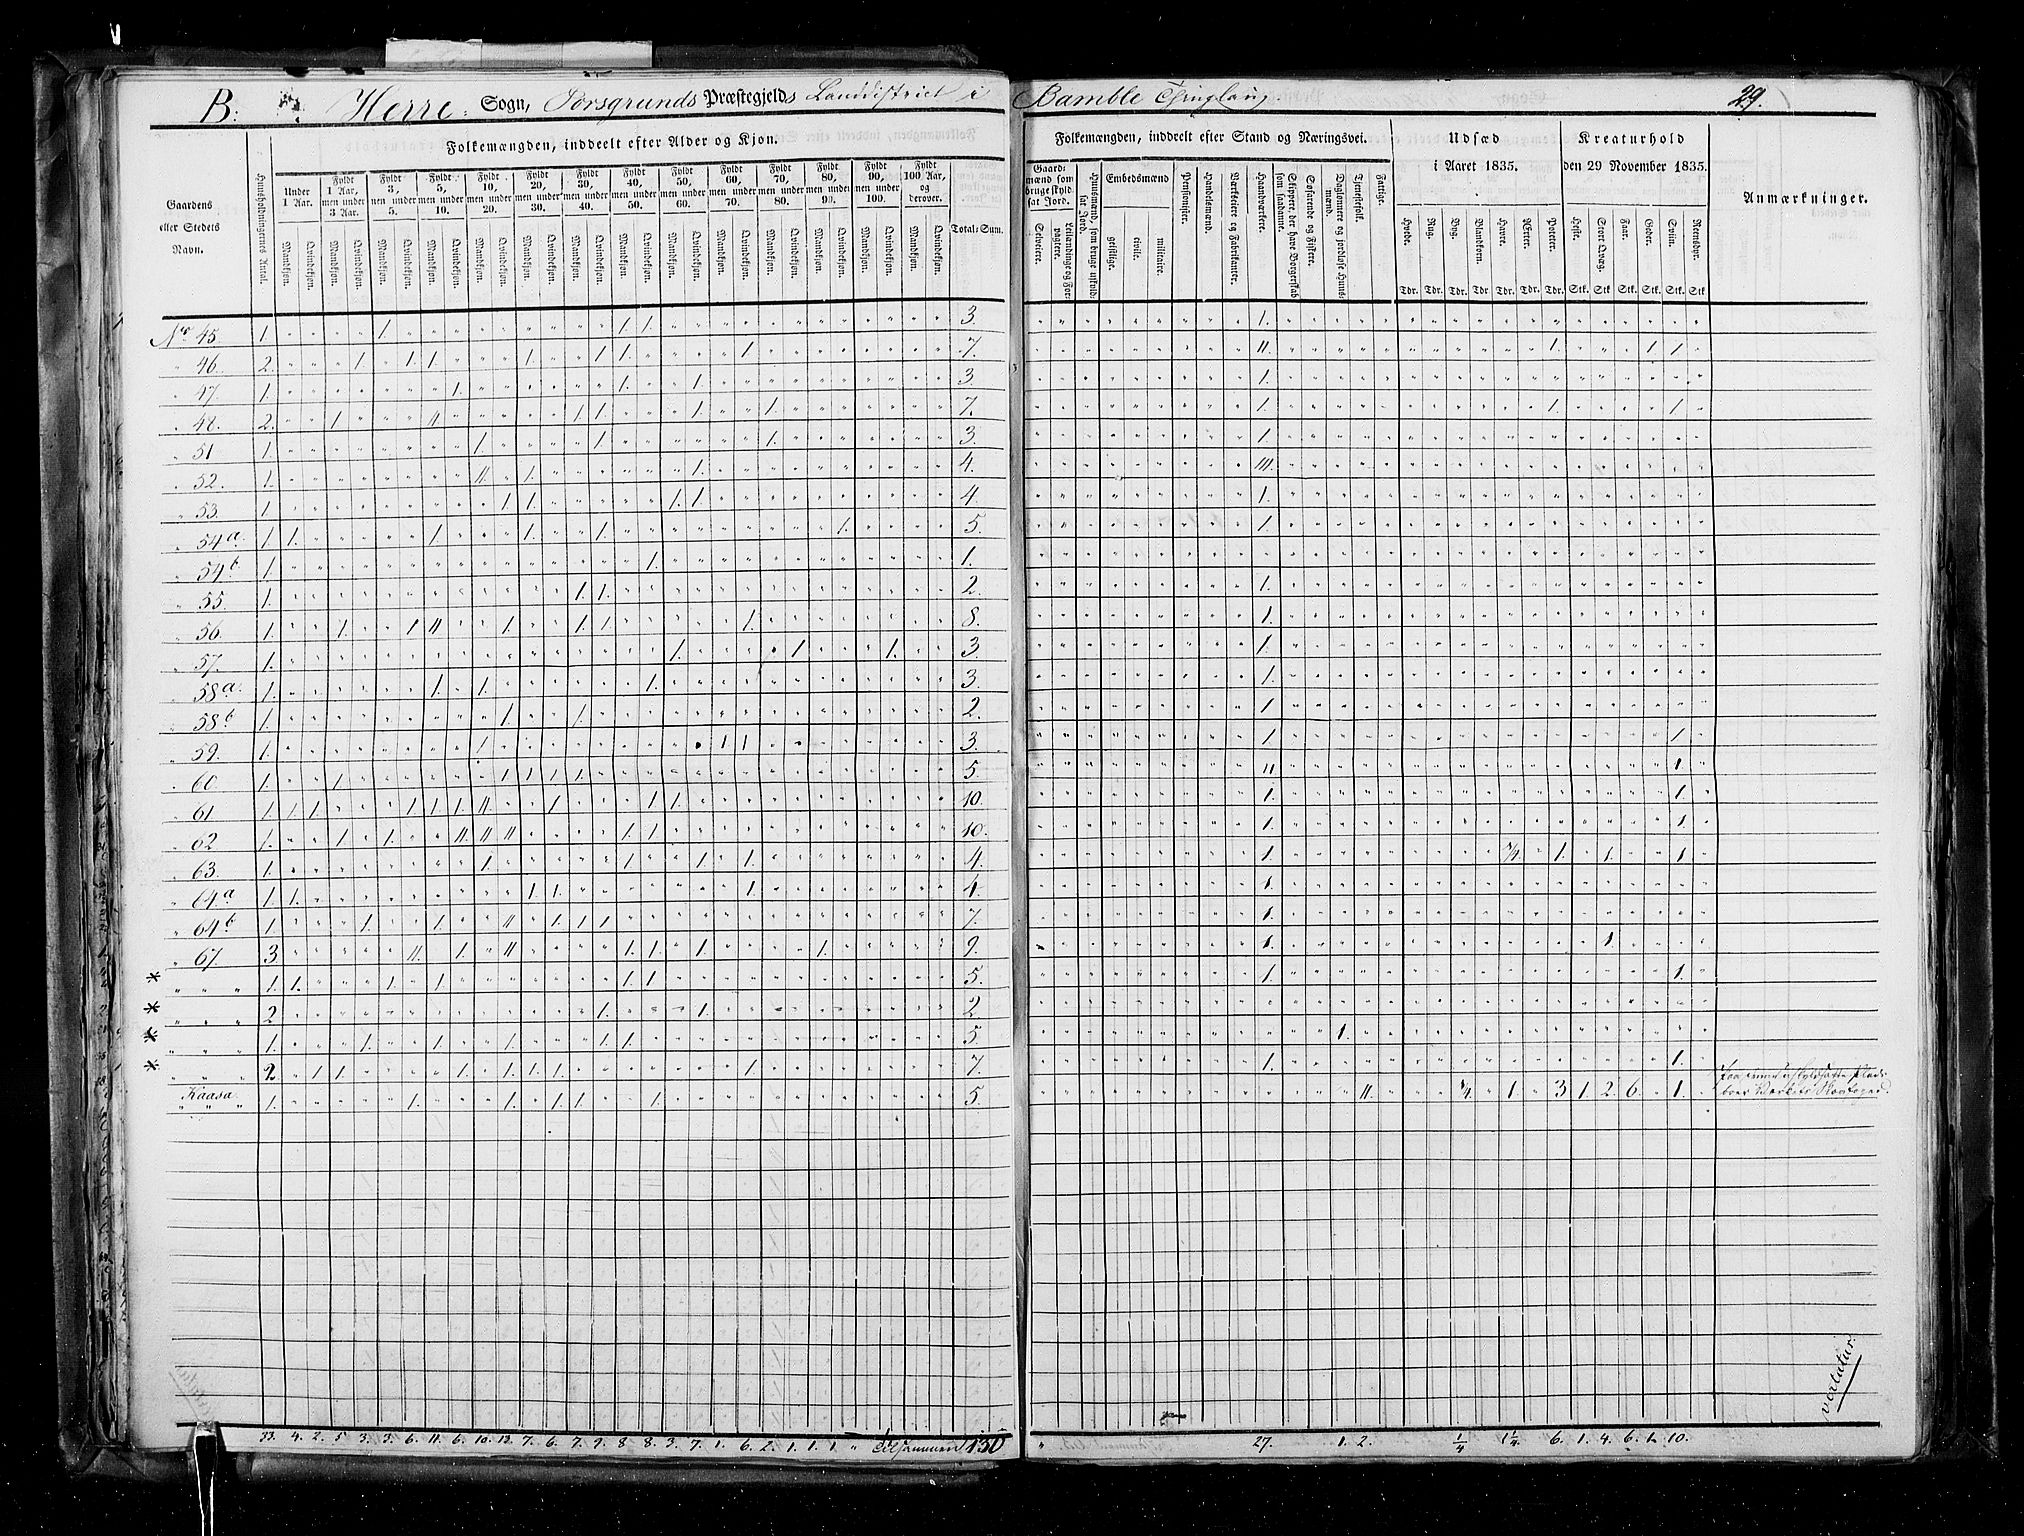 B. Herre Sogn, Porsgrunds Præstegjelds Landdistrict i Bamble Thinglaug 29.
Gaardens eller Stedets Navn.
Huusholdningernes Antal.
Folkemængden, inddeelt efter Alder og Kjøn.
Under 1 Aar.
Fyldt 1 Aar, men under 3 Aar.
Fyldt 3, men under 5.
Fyldt 5, men under 10.
Fyldt 10, men under 20.
Fyldt 20, men under 30.
Fyldt 30, men under 40.
Fyldt 40, men under 50.
Fyldt 50, men under 60.
Fyldt 60, men under 70.
Fyldt 70, men under 80.
Fyldt 80, men under 90.
Fyldt 90, men under 100.
Fyldt 100 Aar, og derover.
Mandkjøn. Qvindekjøn.
Total-Sum.
Folkemængden, inddeelt efter Stand og Næringsvei.
Gaardmænd som bruge skyldsat Jord.
Selveiere.
Leilændinge og Forpagtere.
Huusmænd, som bruge uskyldsat Jord.
Embedsmænd
geistlige. civile. militaire.
Pensionister.
Handelsmænd.
Værkseiere og Fabrikanter.
Haandværkere.
Skippere, der have Borgerskab som saadanne.
Søfarende og Fiskere.
Daglønnere og jordløse Huusmænd.
Tjenestefolk.
Fattige.
Udsæd i Aaret 1835.
Hvede. Rug. Byg. Blandkorn. Havre. Erter. Poteter.
Tdr. Tdr. Tdr. Tdr. Tdr. Tdr. Tdr.
Kreaturhold den 29 November 1835.
Heste. Stort Qvæg. Faar. Geder. Sviin. Reensdyr.
Stk. Stk. Stk. Stk. Stk. Stk.
Anmærkninger.
No 45. 1. 1. 1. 1. 3. 1.
46. 2. 1. 1. 1. 1. 1. 1. 1. 7. 11. 1. 1. 1.
47. 1. 1. 1. 1. 3. 1.
48. 2. 1. 11. 1. 1. 1. 1. 7. 1. 1. 1.
51 1. 1. 1. 1. 3. 1.
52. 1. 11. 1. 1. 4. 111.
53. 1. 1. 1. 1. 1. 4. 1.
54a. 1. 1. 1. 1. 1. 1. 5. 1.
54b 1. 1. 1.
55. 1. 1. 1. 2. 1.
56. 1. 1. 1. 11. 1. 1. 1. 1. 8. 1.
57. 1. 1. 1. 1. 3 1.
58a. 1. 1. 1. 1. 3. 1.
58b 1. 1. 1. 2. 1.
59. 1. 1. 1 1 3. 1 1.
60. 1. 1. 1. 1. 1. 1. 5. 11 1.
61 1. 1. 1. 1. 1. 1. 11. 1. 1. 1. 10. 1. 1.
62 1. 1. 1. 11. 11. 11 1. 1. 10. 1. 1
63. 1. 1. 1 1. 1. 4. 1. 1. 1. 1
64a 1. 1. 1. 1. 1. 4. 1.
64b 1. 1. 1. 11 1. 1. 1. 7. 1.
67. 3. 11. 1. 11 1. 1. 1. 1. 9. 1. 1.
* 1. 1. 1. 1. 1. 1. 5. 1. 1.
* 2 1. 1. 2
* 1. 1. 1. 1. 1. 1. 5. 1.
* 2. 1 1. 1. 1. 1. 1. 1. 7. 1. 1.
Kaasa 1. 1. 1. 1. 1. 1. 5. 11. 1/4 1. 3 1. 2. 6. 1.
33. 4. 2. 5. 3. 3. 6. 11. 6. 10. 13. 7. 6. 7. 9. 8 8. 3. 7. 1. 6. 2. 1. 1. 1. 130
27. 1. 2. 1/4 1 1/4 6. 1. 4. 6. 1. 10.
vertatur.